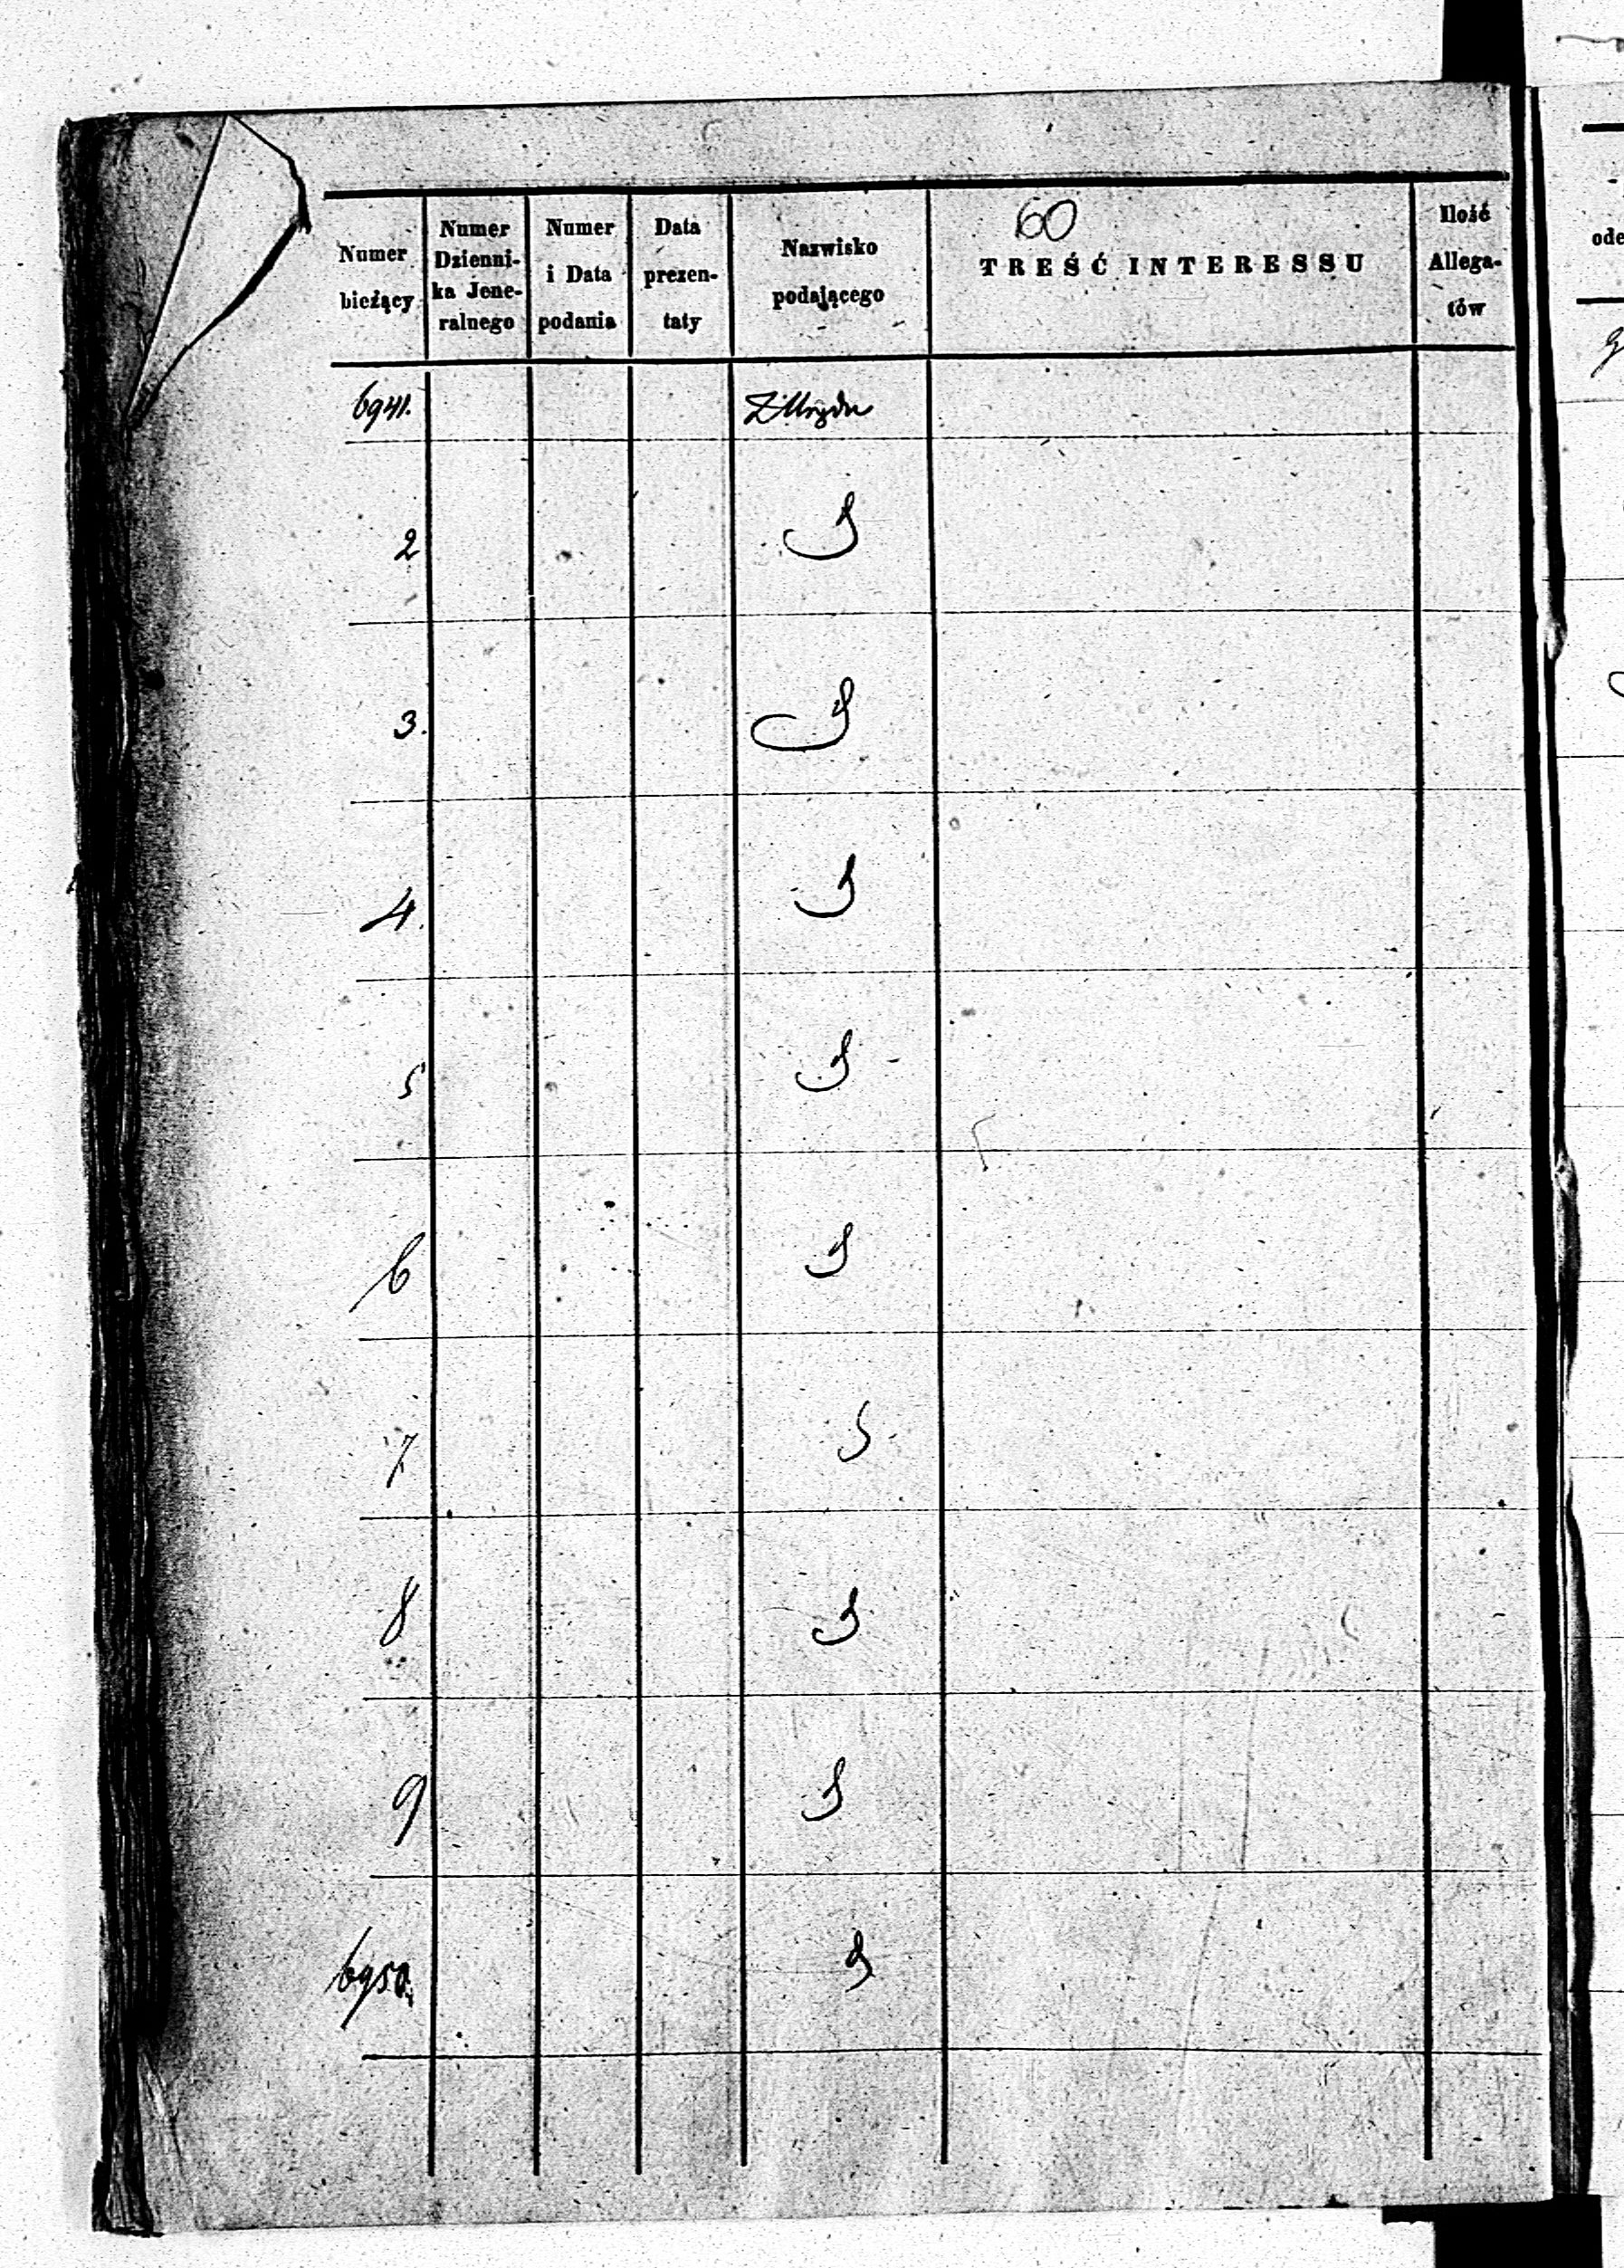 60
Numer bieżący
Numer Dzienni-ka Jene-ralnego
Numer i Data podania
Data prezen-taty
Nazwisko podającego
TREŚĆ INTERESSU
Ilość Allega-tów
6941. Z Urzędu
2
3.
4.
5
6
7
8
9
6950.
ode